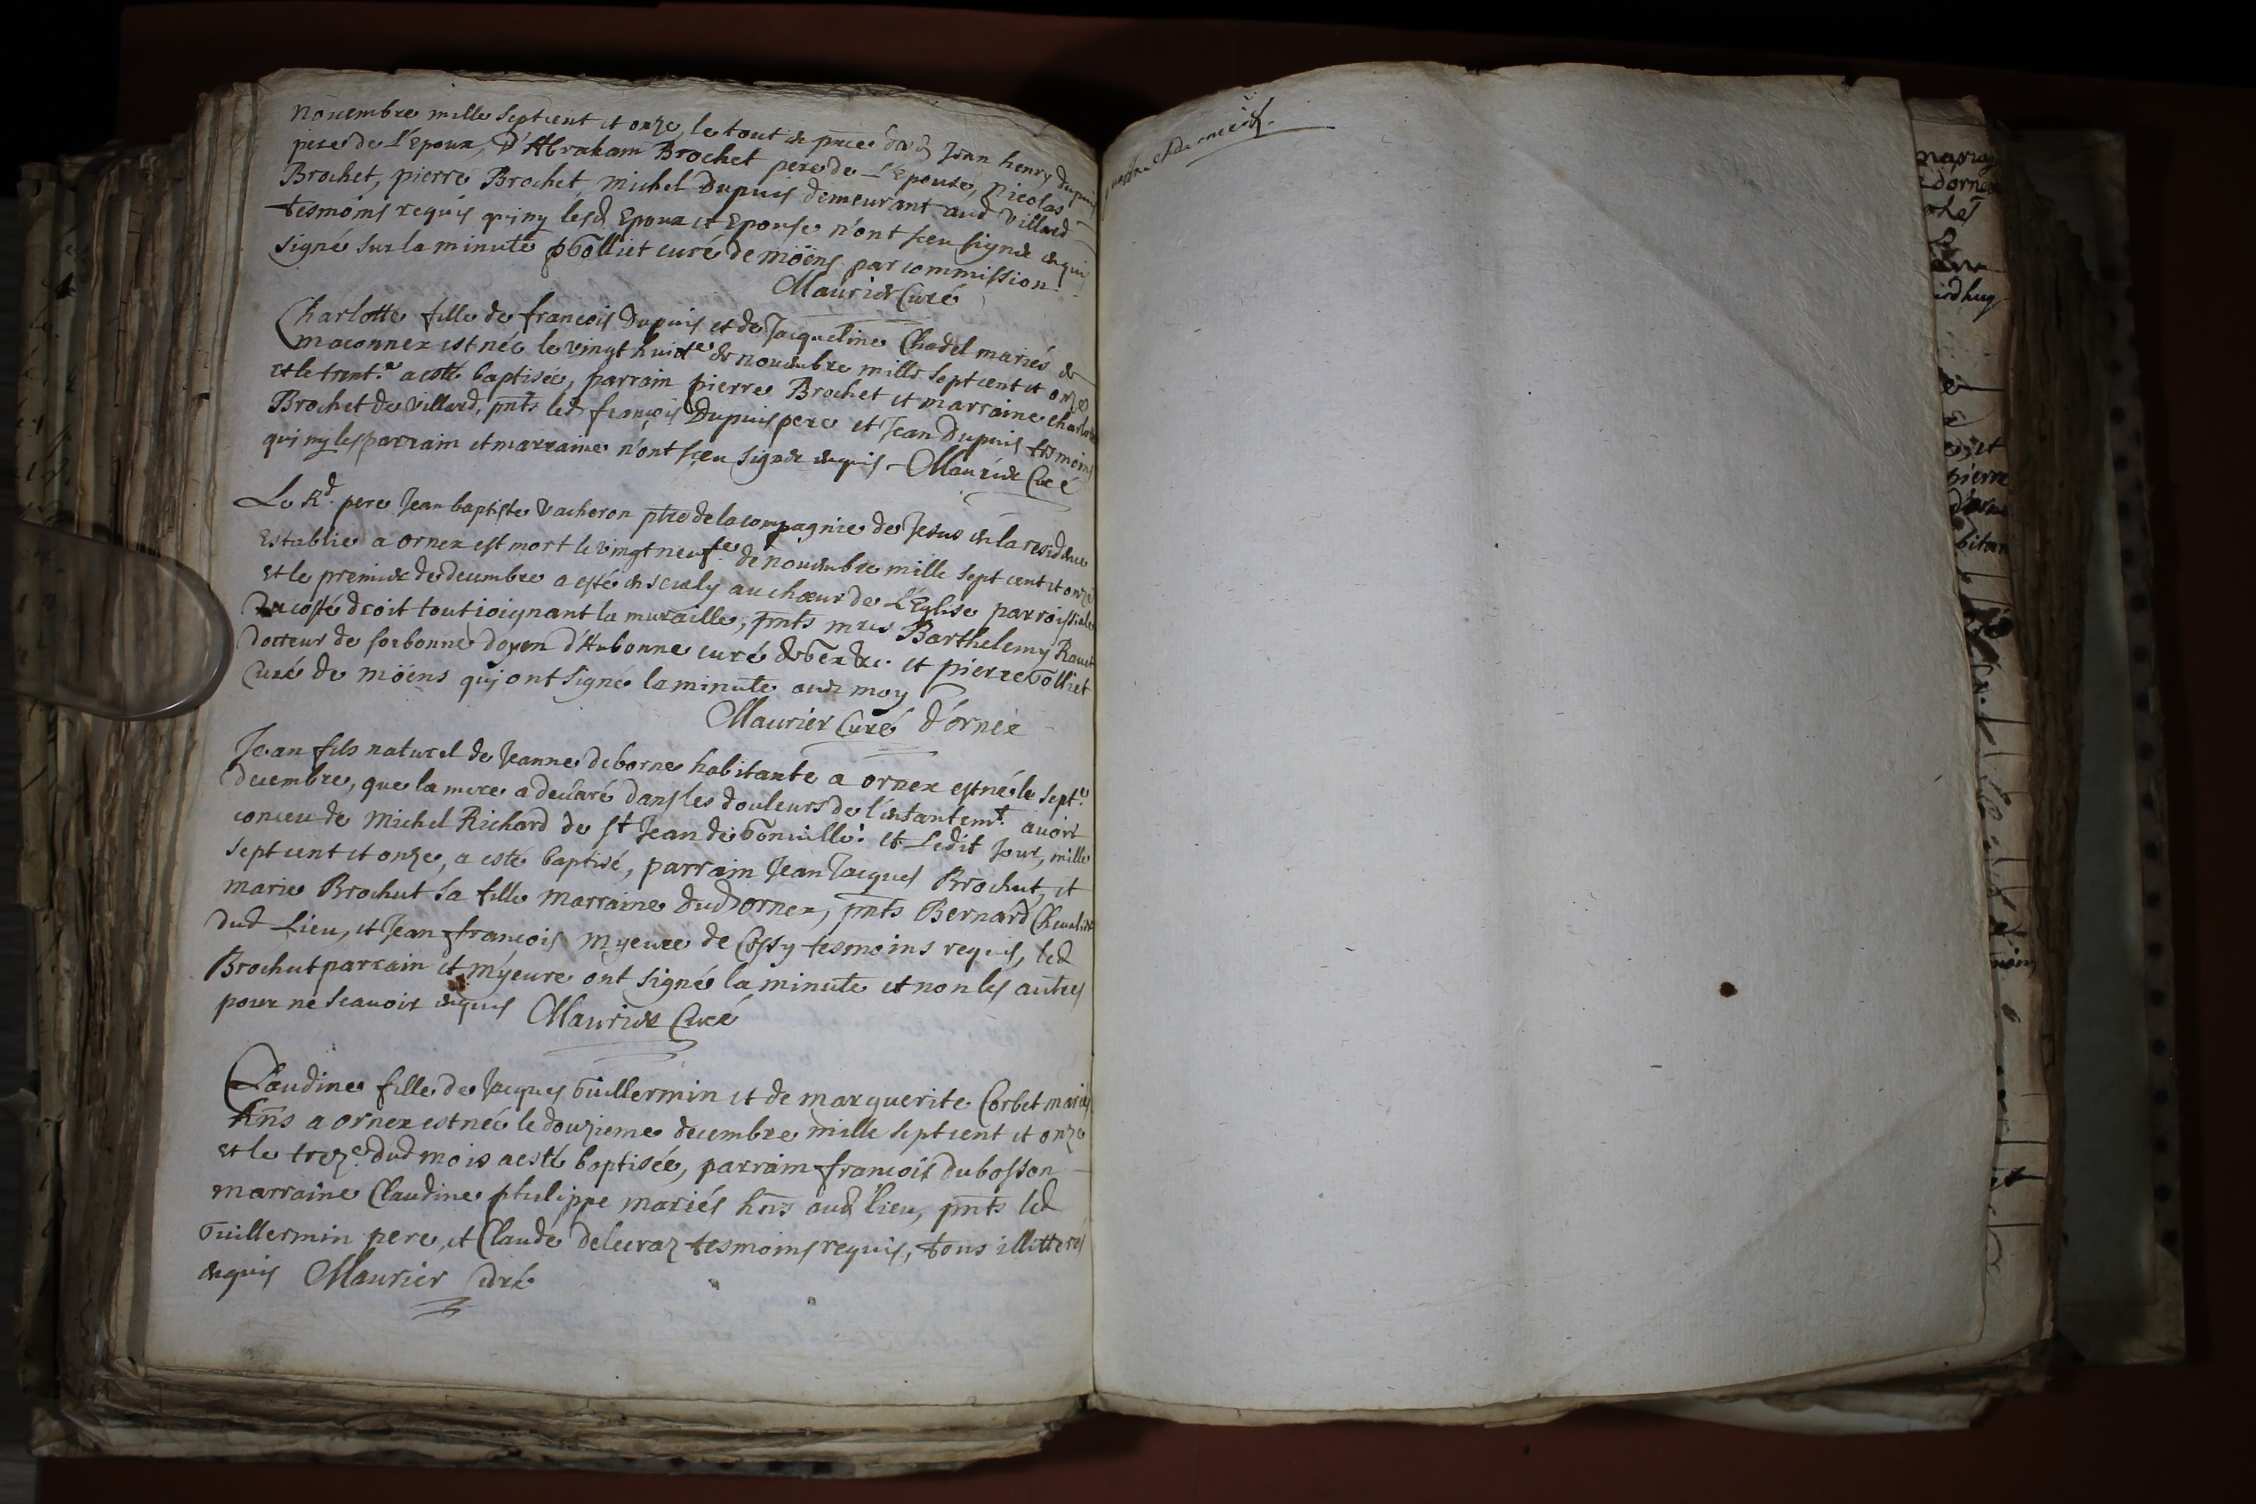 Nouembre mille sept cent et onze, le tout en pnce dud Jean henry Dupuis
pere de L'Epoux, D'Abraham Brochet pere de L'Epouse, Nicolas
Brochet, pierre Brochet, Michel Dupuis demeurant aud Villard
tesmoins requis qui ny lesd Epoux et Epouse n'ont sceu signer enquis
signé sur la minute curé de möens par commission.
Maurier Curé
Charlotte fille de francois Dupuis et de Jacqueline Chadel mariés de
maconnex est née le vingt huicte de nouembre mille sept cent et onze
et le trent.e a esté baptisée, parrain pierre Brochet et marraine charlotte
Brochet de Villard, pnts led françois Dupuis pere et Jean Dupuis tesmoins
qui ny les parrain et marraine n'ont sceu signer enquis Maurier Curé
Le Rd. pere Jean baptiste Vacheron ptre de la compagnie de Jesus en la residence
Establie a ornex est mort le vingt neufe. de nouembre mille sept cent et onze
et le premier de decembre a esté enseuely au choeur de L'Eglise parroissiale
Du costé droit tout ioignant la muraille, pnts mres Barthelemy
Docteur de sorbonne doyen d'Aubonne curé de Gex &c. et pierre
Curé de möens qui ont signé la minute auec moy
Maurier Curé d'ornex
Jean fils naturel de Jeanne deborne habitante a ornex est né le sept.e
decembre, que la mere a declaré dans les douleurs de l'enfantemt. auoir
conceu de Michel Richard de st Jean de Gonuille: et Ledit Jour, mille
sept cent et onze, a esté baptisé, parrain Jean Jacques Brochut, et
marie Brochut sa fille marraine dud ornex, pnts Bernard Cheualier
dud Lieu, et Jean françois myeure de Cessy tesmoins requis, led
Brochut parrain et myeure ont signé la minute et non les autres
pour ne scauoir enquis Maurier Curé
Claudine fille de Jacques Guillermin et de marguerite Corbet mariés
hñs a ornex est née le douzieme decembre mille sept cent et onze
et le treze. dud mois a esté baptisée, parrain françois dubosson
marraine Claudine philippe mariés hns aud lieu, pnts led
Guillermin pere, et Claude delecraz tesmoins requis, tous illitterés
enquis Maurier Curé